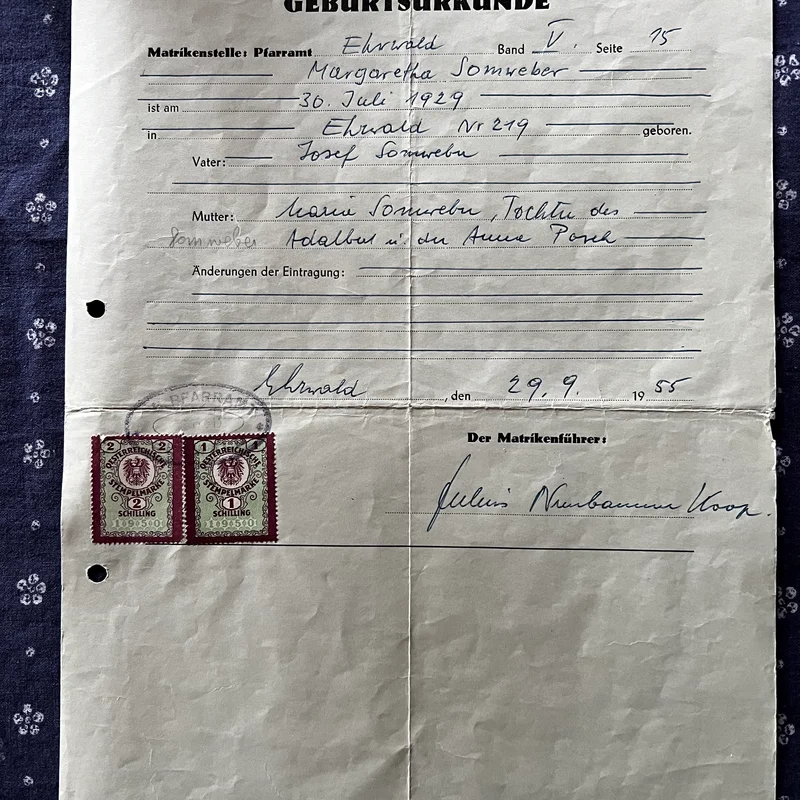 GEBURTSURKUNDE
Matrikenstelle: Pfarramt Ehrwald Band V. Seite 15
Margaretha Somweber
ist am 30. Juli 1929
in Ehrwald Nr 219 geboren.
Vater: Josef Somweber
Mutter: Maria Somweber, Tochter des
Somweber Adalbert u. der Anna Posch
Änderungen der Eintragung:
Ehrwald, den 29. 9. 1955
PFARRAMT
Der Matrikenführer:
2 2
ÖSTERREICHISCHE
STEMPELMARKE
2
SCHILLING
1 1
ÖSTERREICHISCHE
STEMPELMARKE
1
SCHILLING
Julius Koop.